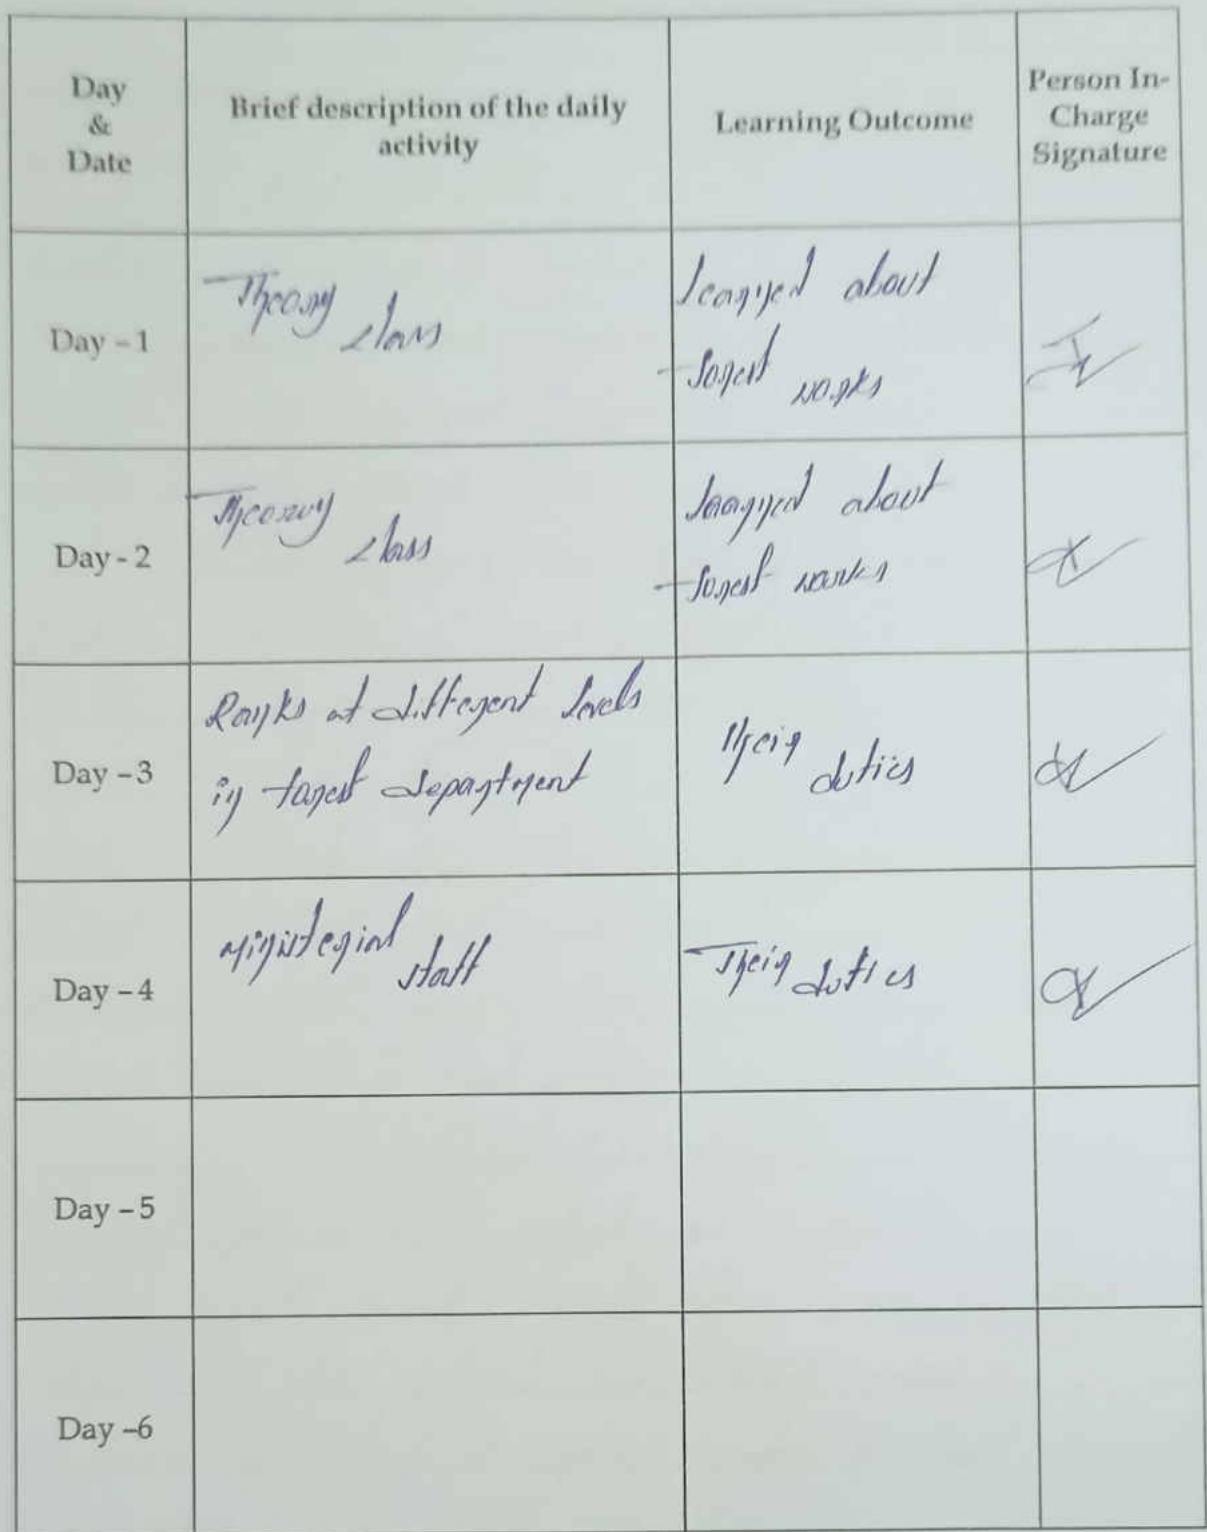 Day
&
Date
Brief description of the daily
activity
Learning Outcome
Person In-
Charge
Signature
Day - 1
Theory class
learned about
forest works
Day - 2
Theory class
learned about
forest works
Day - 3
Ranks at different levels
in forest department
Their duties
Day - 4
Ministerial staff
Their duties
Day - 5
Day -6